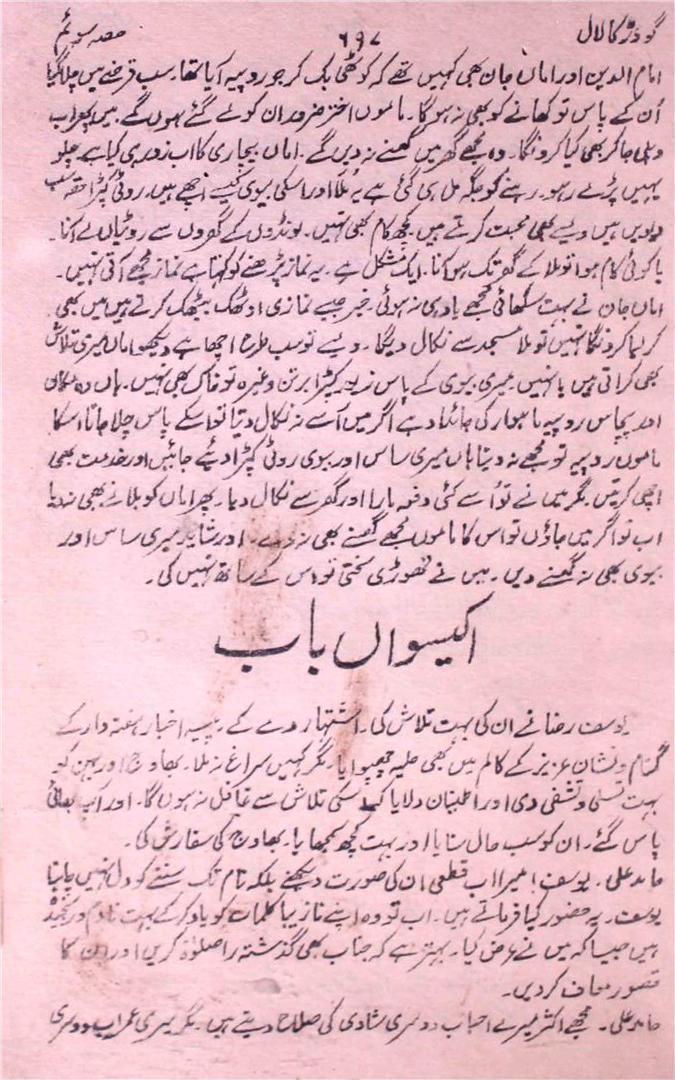 گودڑ کا لال ۶۹۷ حصہ سوئم
امام الدین اور اماں جان بھی کہیں تھے کہ کوٹھی بک کر جو روپیہ آیا تھا۔ سب قرضے میں چلا گیا
اُن کے پاس تو کھانے کو بھی نہ ہوگا۔ ماموں اختر ضرور ان کو لے گئے ہوں گے۔ میں پھر اب
دہلی جا کر بھی کیا کرونگا۔ وہ مجھے گھر میں گھسنے نہ دیں گے۔ اماں بیچاری کا اب زور ہی کیا ہے چلو
یہیں پڑے رہو۔ رہنے کو جگہ مل ہی گئی ہے یہ مُلّا اور اسکی بیوی کیسے اچھے ہیں۔ روٹی کپڑا حقہ سب
دیدیں ہیں ویسے بھی محبت کرتے ہیں۔ کچھ کام بھی نہیں۔ لونڈوں کے گھروں سے روٹیاں لے آنا۔
یا کوئی کام ہوا تو ملا کے گھر تک ہو آنا۔ ایک مشکل ہے۔ یہ نماز پڑھنے کو کہتا ہے نماز مجھے آتی نہیں۔
اماں جان نے بہت سکھائی مجھے یاد ہی نہ ہوئی۔ خیر جیسے نمازی اوٹھک بیٹھک کرتے ہیں میں بھی
کر لیا کرونگا نہیں تو ملا مسجد سے نکال دیگا۔ ویسے تو سب طرح اچھا ہے دیکھو اماں میری تلاش
بھی کراتی ہیں یا نہیں۔ میری بیوی کے پاس زیور کپڑا برتن وغیرہ تو خاک بھی نہیں۔ ہاں وہ مکان
اور پچاس روپیہ ماہوار کی جائداد ہے اگر میں اُسے نہ نکال دیتا تو اسکے پاس چلا جاتا اسکا
ماموں روپیہ تو مجھے نہ دیتا ہاں میری ساس اور بیوی روٹی کپڑا دیئے جاتیں اور خدمت بھی
اچھی کرتیں۔ مگر میں نے تو اُسے کئی دفعہ مارا اور گھر سے نکال دیا۔ پھر اماں کو بلانے بھی نہ دیا
اب تو اگر میں جاؤں تو اس کا ماموں مجھے گھسنے بھی نہ دے۔ اور شاید میری ساس اور
بیوی بھی نہ گھسنے دیں۔ میں نے تھوڑی سختی تو اس کے ساتھ نہیں کی۔
اکیسواں باب
یوسف رضا نے ان کی بہت تلاش کی۔ اشتہار دے کے۔ پیسہ اخبار ہفتہ وار کے
گمنام و نشان عزیز کے کالم میں بھی حلیہ چھپوایا۔ مگر کہیں سراغ نہ ملا۔ بھاوج اور بہن کو
بہت تسلی و تشفی دی اور اطمینان دلایا کہ اسکی تلاش سے غافل نہ ہوں گا۔ اور آپ بھائی
پاس گئے۔ ان کو سب حال سنایا اور بہت کچھ سمجھایا۔ بھاوج کی سفارش کی۔
حامد علی۔ یوسف! میرا اب قطعی ان کی صورت دیکھنے بلکہ نام تک سننے کو دل نہیں چاہتا
یوسف۔ یہ حضور کیا فرماتے ہیں۔ اب تو وہ اپنے نازیبا کلمات کو یاد کر کے بہت نادم و رنجیدہ
ہیں جیسا کہ میں نے عرض کیا۔ بہتر ہے کہ جناب بھی گذشتہ را صلوٰۃ کریں اور ان کا
قصور معاف کر دیں۔
حامد علی۔ مجھے اکثر میرے احباب دوسری شادی کی صلاح دیتے ہیں۔ مگر میری عمر اب دوسری